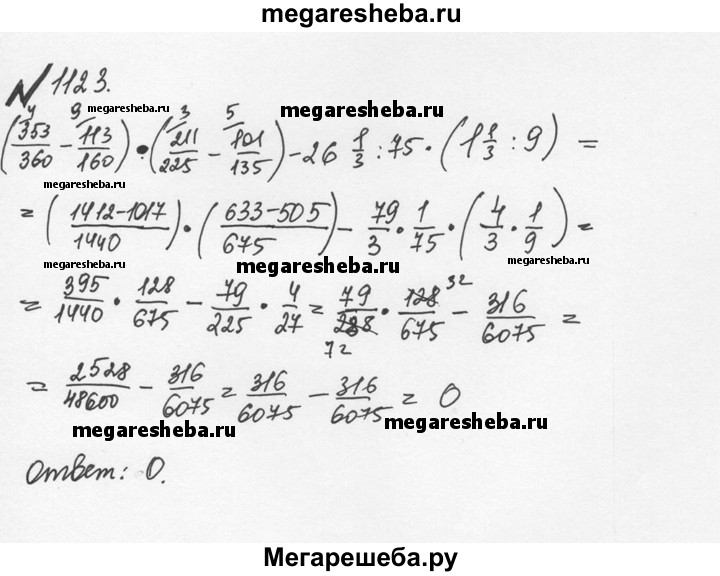 megaresheba.ru
№ 1123.
4 9 megaresheba.ru 3 5 megaresheba.ru
(353/360 − 113/160) • (211/225 − 101/135) − 26 1/3 : 75 • (1 1/3 : 9) =
megaresheba.ru
= (1412−1017/1440) • (633−505/675) − 79/3 • 1/75 • (4/3 • 1/9) =
megaresheba.ru megaresheba.ru megaresheba.ru
= 395/1440 • 128/675 − 79/225 • 4/27 = 79/288 72 • 128 32/675 − 316/6075 =
= 2528/48600 − 316/6075 = 316/6075 − 316/6075 = 0
megaresheba.ru megaresheba.ru
Ответ: 0.
Мегарешеба.ру